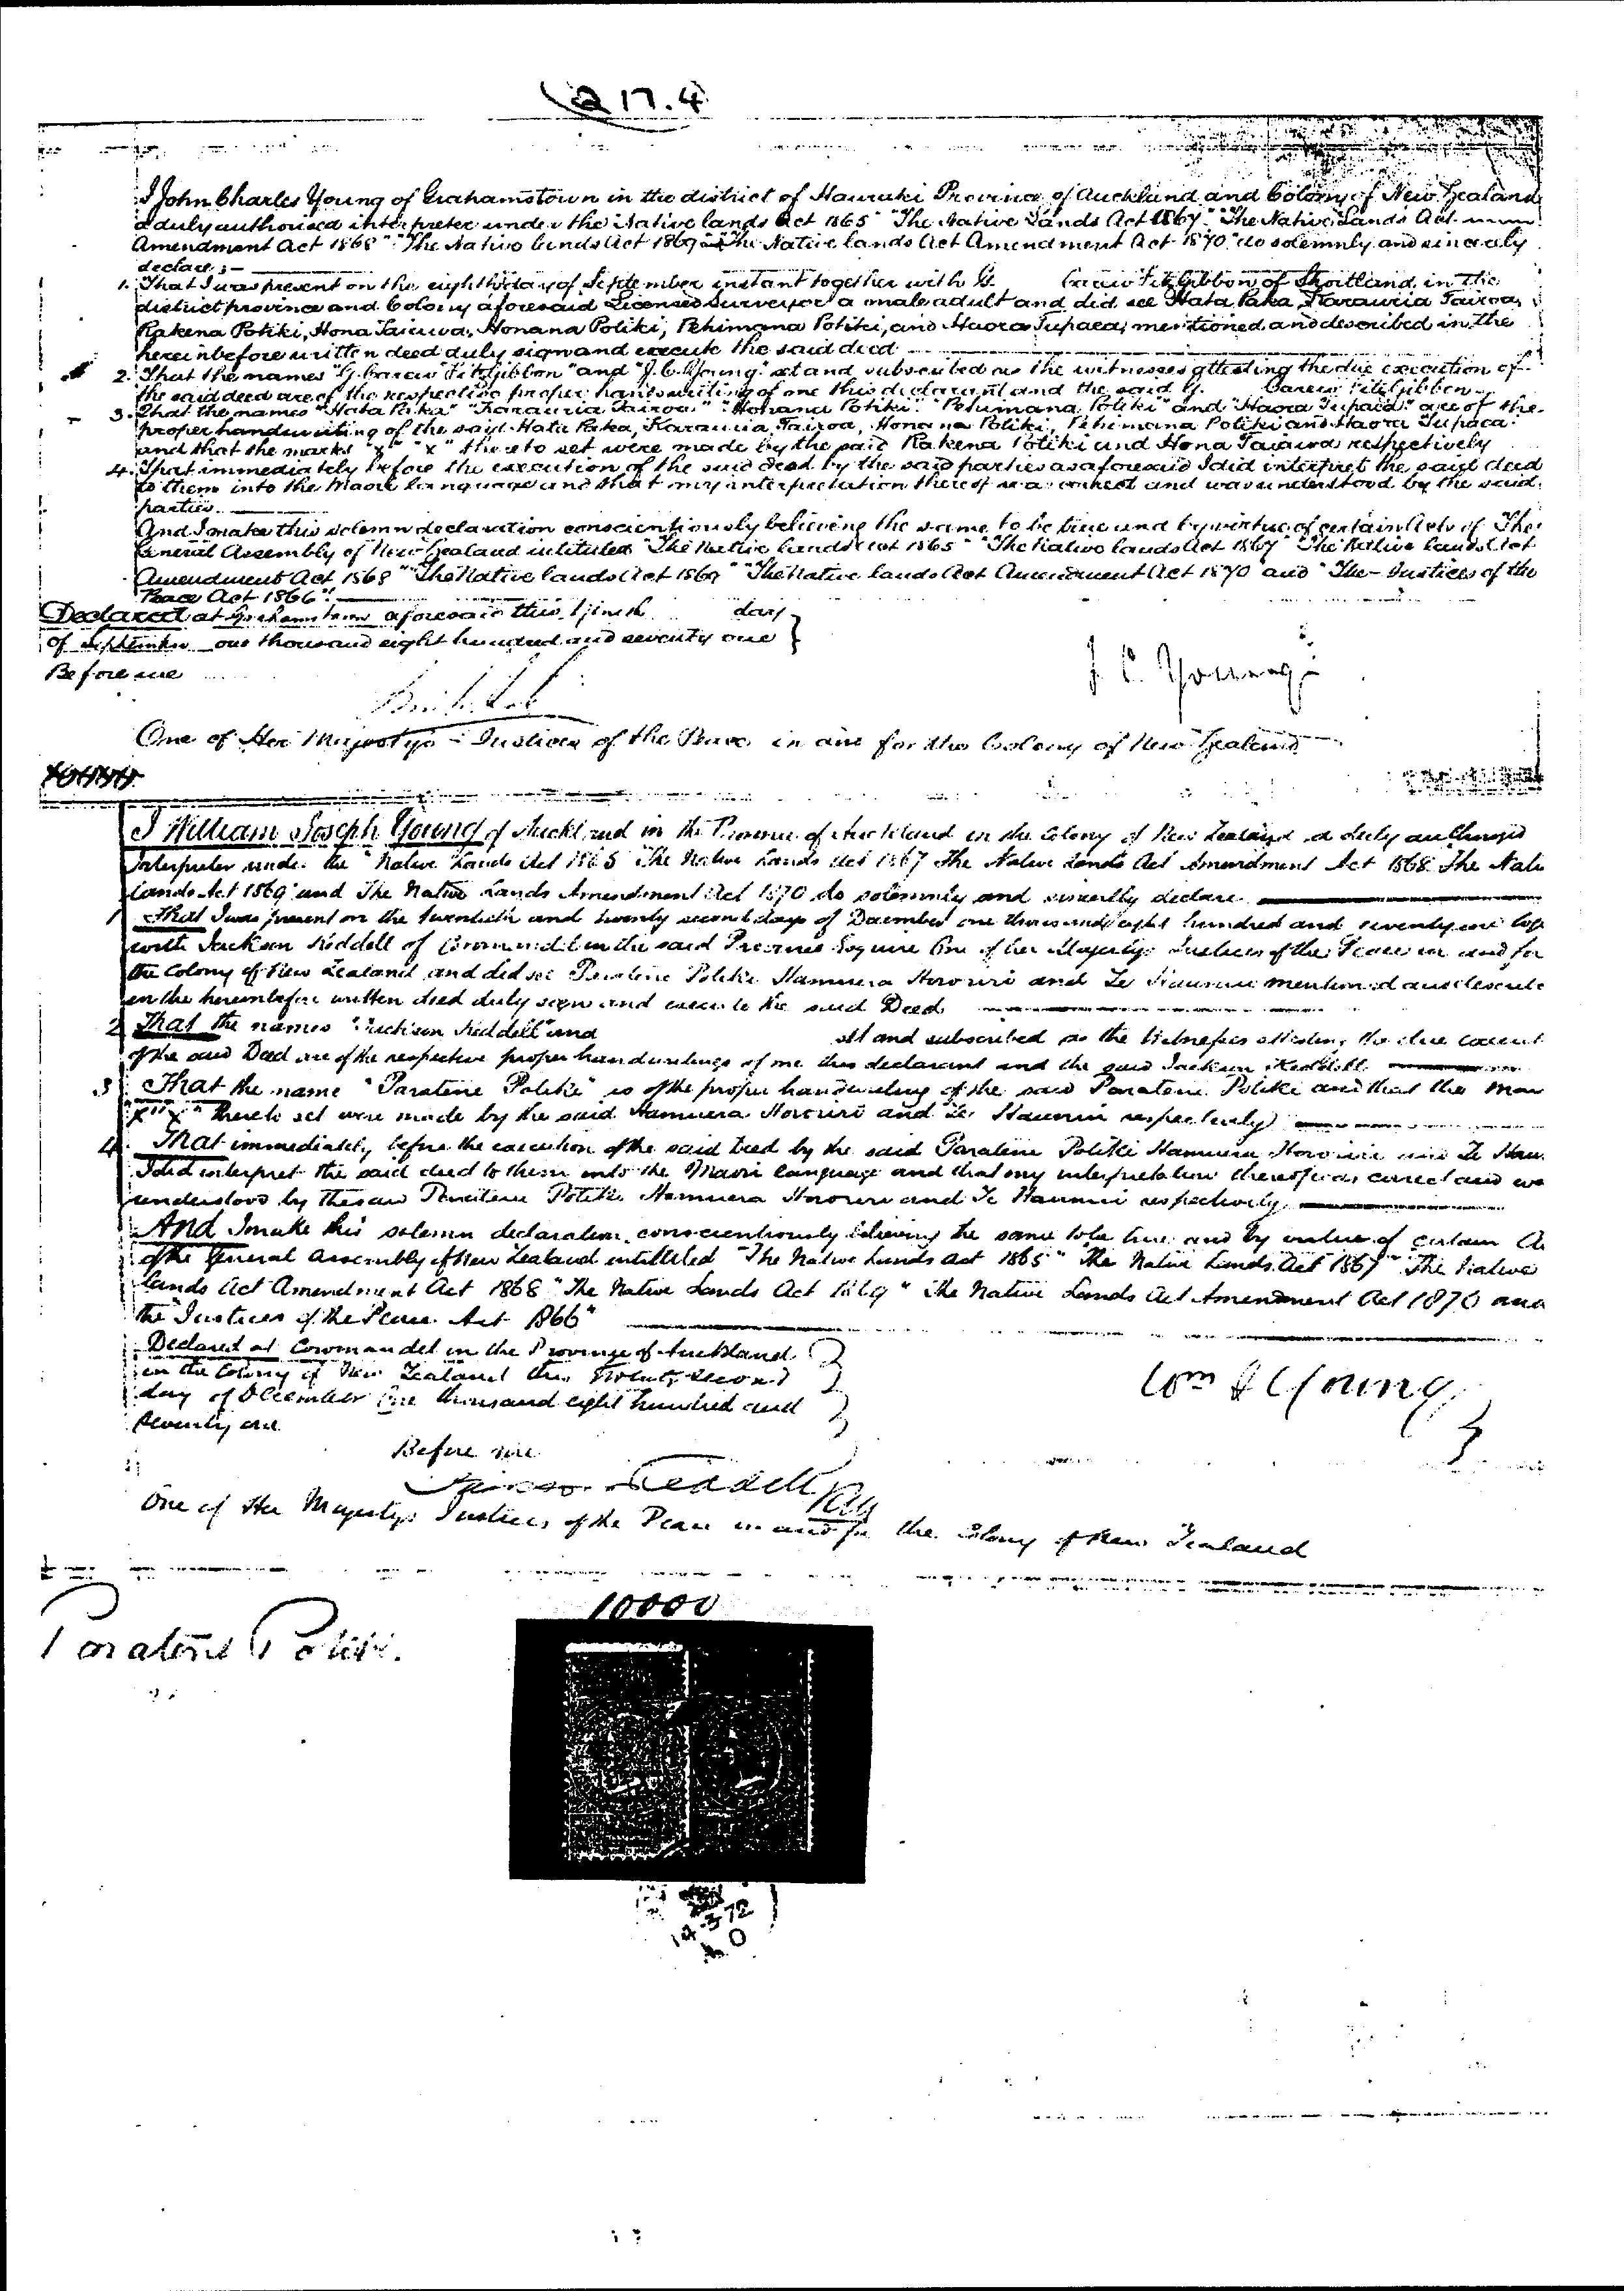 217.4
I John Charles Young of Grahamstown in the district of Hauraki Province of Auckland and Colony of New Zealand
a duly authorised interpreter under the Native Lands Act 1865" "The Native Lands Act 1867" "The Native Lands Act
Amendment Act 1868" "The Native Lands Act 1869" "The Native Lands Act Amendment Act 1870" do solemnly and sincerely
declare :—
1. That I was present on the eighth day of September instant together with G. Carew Fitzgibbon of Shortland in the
district province and Colony aforesaid Licensed Surveyor a male adult and did see Hata Paka, Karauria Tairoa,
Rakena Potiki, Hona Tairua, Honana Potiki, Pehimana Potiki, and Haora Tupaea, mentioned and described in the
hereinbefore written deed duly sign and execute the said deed
2. That the names "G. Carew Fitzgibbon" and "J. C. Young" set and subscribed as the witnesses attesting the due execution of
the said deed are of the respective proper handwriting of me this declarant and the said G. Carew Fitzgibbon
3. That the names "Hata Paka" "Karauria Tairoa" "Honana Potiki" "Pehimana Potiki" and "Haora Tupaea" are of the
proper handwriting of the said Hata Paka, Karauria Tairoa, Honana Potiki, Pehimana Potiki and Haora Tupaea
and that the marks "x" "x" thereto set were made by the said Rakena Potiki and Hona Tairua respectively
4. That immediately before the execution of the said deed by the said parties as aforesaid I did interpret the said deed
to them into the Maori language and that my interpretation thereof was correct and was understood by the said
parties
And I make this solemn declaration conscientiously believing the same to be true and by virtue of certain Acts of The
General Assembly of New Zealand intituled "The Native Lands Act 1865" "The Native Lands Act 1867" "The Native Lands Act
Amendment Act 1868" "The Native Lands Act 1869" "The Native Lands Act Amendment Act 1870" and "The Justices of the
Peace Act 1866".
Declared at Grahamstown aforesaid this day
of September one thousand eight hundred and seventy one
Before me
J. C. Young
One of Her Majesty's Justices of the Peace in and for the Colony of New Zealand
I William Joseph Young of Auckland in the Province of Auckland in the Colony of New Zealand a duly authorized
Interpreter under the "Native Lands Act 1865 The Native Lands Act 1867 The Native Lands Act Amendment Act 1868 The Nati
Lands Act 1869 and The Native Lands Amendment Act 1870 do solemnly and sincerely declare
1 That I was present on the twentieth and twenty second days of December one thousand eight hundred and seventy one tog
with Jackson Keddell of Coromandel in the said Province Esquire One of her Majestys Justices of the Peace in and for
the Colony of New Zealand and did see Paratene Potiki Hamuera Horouri and Te Haunui mentioned and describe
in the hereinbefore written deed duly sign and execute the said Deed
2 That the names "Jackson Keddell" and set and subscribed as the Witnesses attesting the due execut
of the said Deed are of the respective proper handwritings of me this declarant and the said Jackson Keddell
3 That the name "Paratene Potiki" is of the proper handwriting of the said Paratene Potiki and that the mar
"x" "x" thereto set were made by the said Hamuera Horouri and Te Haunui respectively
4. That immediately before the execution of the said Deed by the said Paratene Potiki Hamuera Horouri and Te Hau
I did interpret the said deed to them into the Maori language and that my interpretation thereof was correct and wa
understood by the said Paratene Potiki Hamuera Horouri and Te Haunui respectively
And I make this solemn declaration conscientiously believing the same to be true and by virtue of certain A
of the General Assembly of New Zealand intitulted "The Native Lands Act 1865" "The Native Lands Act 1867" "The Native
Lands Act Amendment Act 1868 "The Native Lands Act 1869" "The Native Lands Act Amendment Act 1870 and
the "Justices of the Peace Act 1866"
Declared at Coromandel in the Province of Auckland
in the Colony of New Zealand this Twenty second
day of December One thousand eight hundred and
seventy one
Wm J Young
Before me
Jackson Keddell RM
One of Her Majestys Justices of the Peace in and for the Colony of New Zealand
10000
Paratene Potiki.